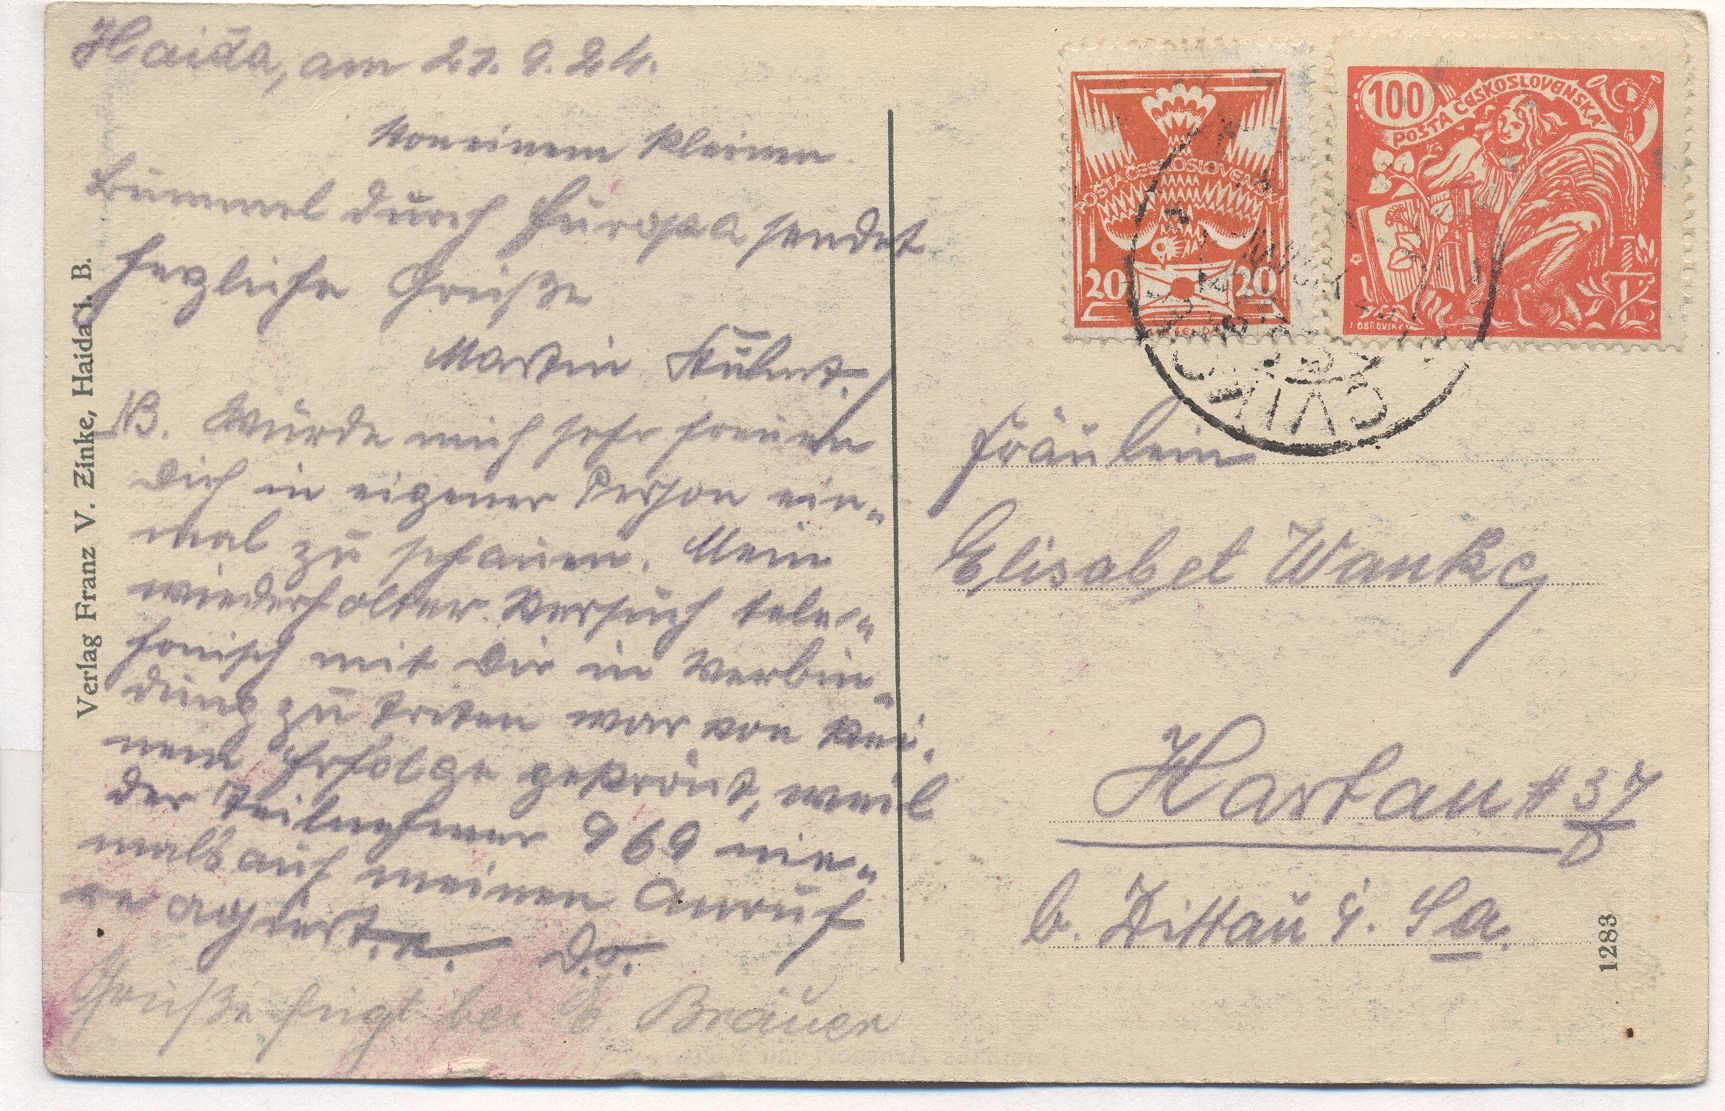 Haida, am 21.9.24.
Von einem kleinen
Bummel durch Europa sendet
herzliche Grüße
Martin
NB. Würde mich sehr freuen
Dich in eigener Person ein-
mal zu schauen. Mein
wiederholter Versuch tele-
fonisch mit Dir in Verbin-
dung zu treten war von kei-
nem Erfolge gekrönt, weil
der Teilnehmer 969 nie-
mals auf meinen Anruf
reagierte. D.O.
Grüße fügt bei E. Bräuer
Verlag Franz V. Zinke, Haida i. B.
POSTA ČESKOSLOVENSKÁ
20 20
100
POSTA ČESKOSLOVENSKÁ
Fräulein
Elisabet Wanke
Hartau # 37
b. Zittau i. Sa.
1283